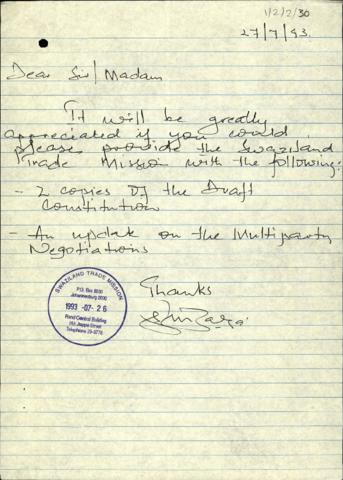 1/2/2/30
27/7/93.
Dear Sir/Madam
It will be greatly
appreciated if you could
please provide the Swaziland
Trade Mission with the following:
- 2 copies of the Draft
Constitution
- An update on the Multiparty
Negotiations
Thanks
SWAZILAND TRADE MISSION
P.O. Box 8030
Johannesburg 2000
1993 -07- 26
Rand Central Building
165 Jeppe Street
Telephone 29-9776